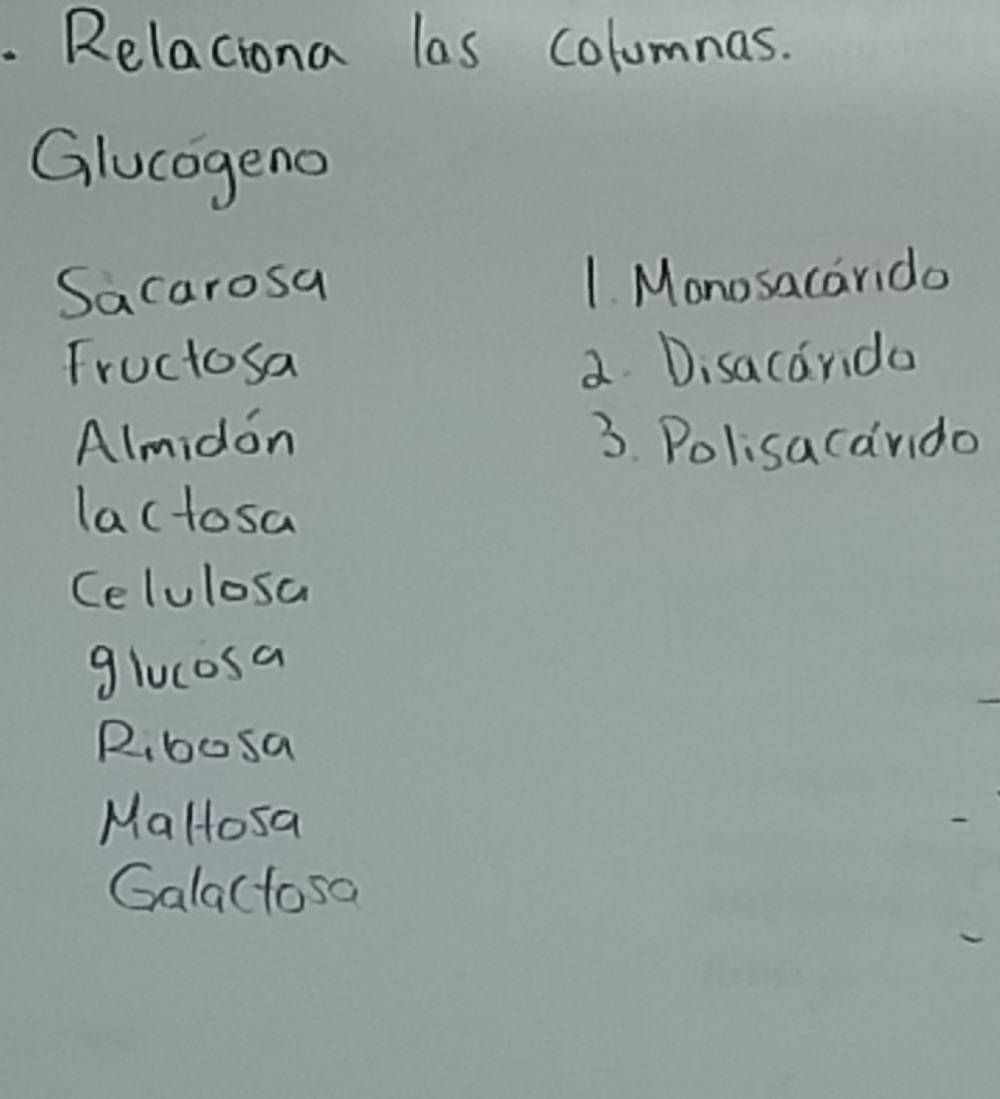 . Relaciona las columnas.
Glucógeno
Sacarosa 1. Monosacárido
Fructosa 2. Disacárido
Almidón 3. Polisacárido
lactosa
Celulosa
glucosa
Ribosa
Maltosa
Galactosa